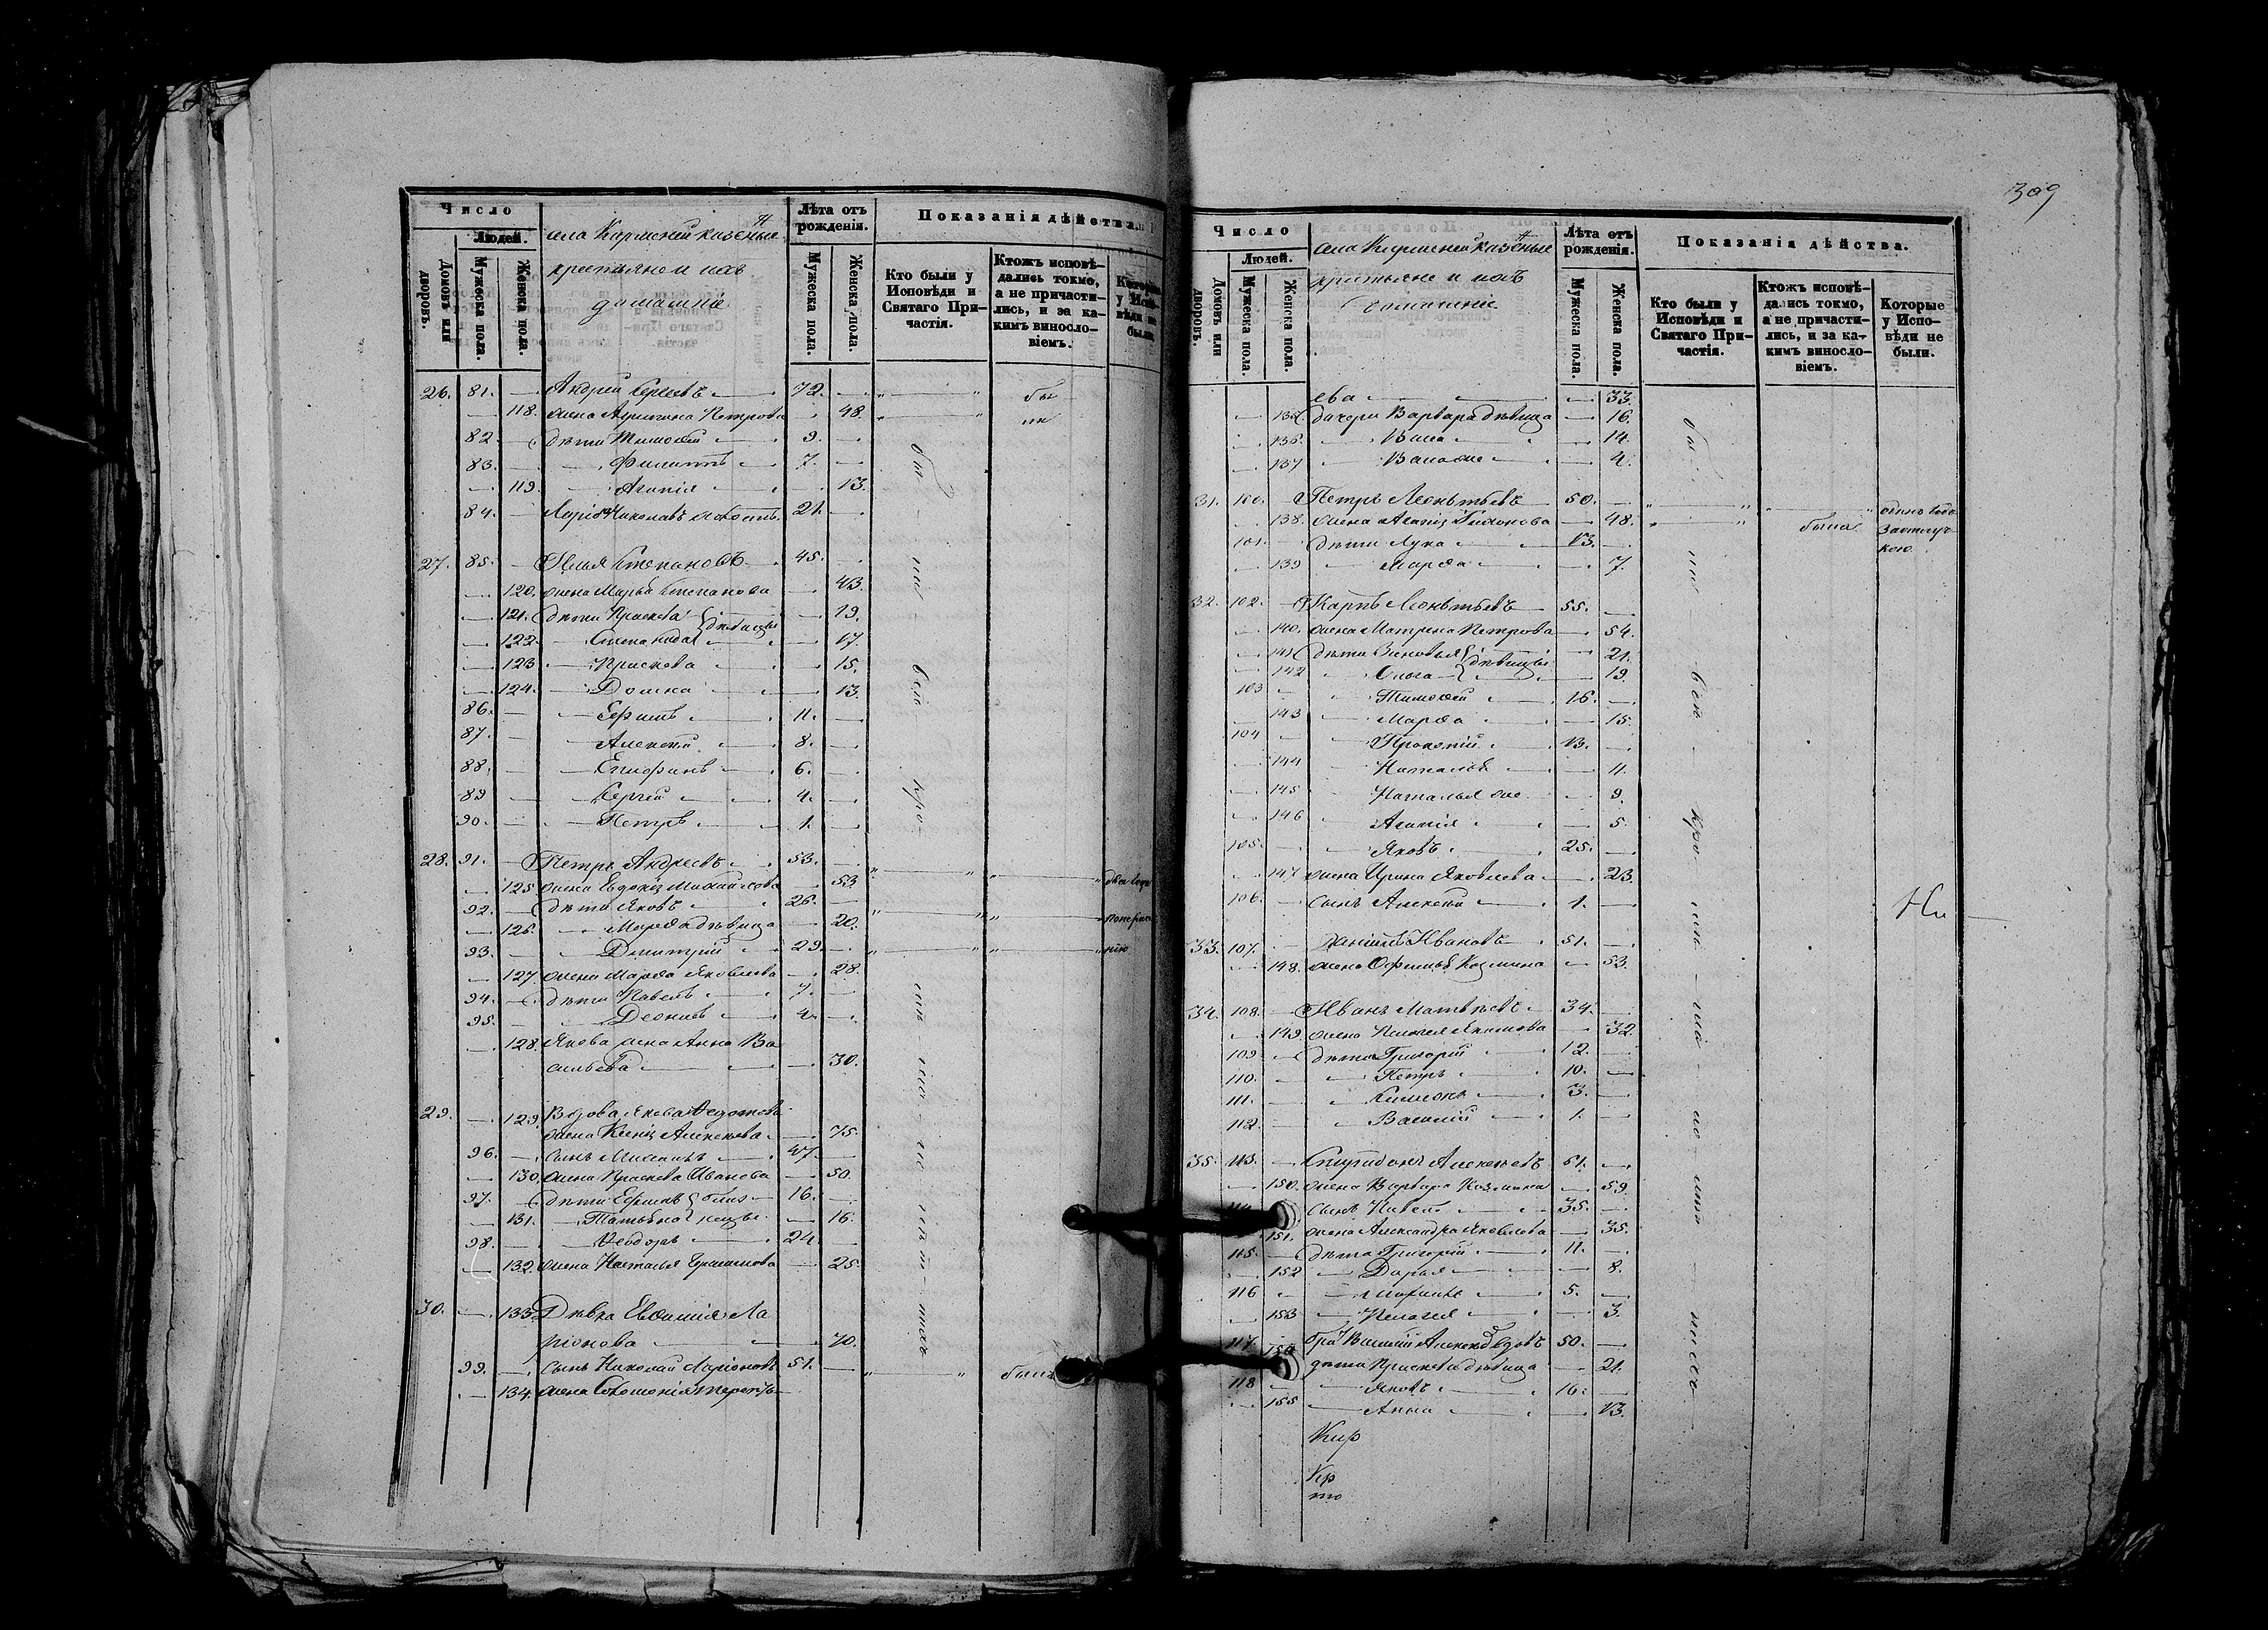 Число
Людей.
Домовъ или дворовъ.
Мужеска пола.
Женска пола.
села Кармалей казенные
крестьяне и ихъ
домашніе
Лѣта отъ рожденія.
Мужеска пола.
Женска пола.
Показанія дѣйства.
Кто были у Исповѣди и Святаго Причастія.
Ктожъ исповѣдались токмо, а не причастились, и за какимъ винословіемъ.
Которые у Исповѣди не были.
26. 81. Андрей Сергеевъ 72.
118. жена Агрипина Петрова 48.
82. дѣти Тимофей 9.
83. Филиппъ 7.
119. Агапія 13.
84. 21.
27. 85. Илья Степановъ 45.
120. жена Марья Степанова 43.
121. дѣти Праскева 19.
122. Степанида дѣвицы 17.
123 Праскева 15.
124. Домна 13.
86. Ефимъ 11.
87. Алексей 8.
88. Епифанъ 6.
89 Сергей 4.
90. Петръ 1.
28. 91. Петръ Андреевъ 53.
125 жена Евдокія Михайлова 53
92. дѣти Яковъ 26.
126. Марфа дѣвица 20.
93. Дмитрій 29
127 жена Марфа Яковлева 28.
94. дѣти Павелъ 7.
95. Деонисъ 4.
128. Якова жена Анна Ва
сильева 30.
29. 129 Вдова Якова Федотова
жена Ксенія Алексеева 75.
96. сынъ Михаилъ 47.
130 жена Праскева Иванова 50.
97. дѣти Ефимъ близ 16.
131. Татьяна нецы 16.
98. Феодоръ 24
132 жена Наталья Герасимова 25.
30. 133 Дѣвка Евфимія Ла
ріонова 70.
99. сынъ Николай Ларіоновъ 51.
134. жена Соломонія Терентъ
309
Число
Людей.
Домовъ или дворовъ.
Мужеска пола.
Женска пола.
села Кармалей казенные
крестьяне и ихъ
домашніе
Лѣта отъ рожденія.
Мужеска пола.
Женска пола.
Показанія дѣйства.
Кто были у Исповѣди и Святаго Причастія.
Ктожъ исповѣдались токмо, а не причастились, и за какимъ винословіемъ.
Которые у Исповѣди не были.
ева 33.
135 дочери Варвара дѣвица 16.
136. 14.
137 4.
31. 100. Петръ Леонтьевъ 50.
138. жена Агапія 48. была
101. дѣти Лука 13.
139 Марфа 7.
32. 102. Карпъ Леонтьевъ 55.
140. жена Матрена Петрова 54.
141 дѣти Зиновья дѣвицы 21.
142 Ольга 19.
103 Тимофей 16.
143 Марфа 15.
104 Прокопій 13.
144 Наталья 11.
145 Наталья же 9.
146 Агапія 5.
105. Яковъ 25.
147 жена Ирина Яковлева 23.
106. сынъ Алексей 1.
33. 107. Даніилъ Ивановъ 51.
148. жена Офимья Козмина 53.
34. 108. Иванъ Матвѣевъ 34.
149 жена Пелагея Якимова 32.
109. дѣти Григорій 12.
110. Петръ 10.
111. Симеонъ 3.
112. Василій 1.
35. 113. Спиридонъ Алексеевъ 61.
150. жена Варвара Козмина 59
сынъ Павелъ 35.
151. жена Александра Яковлева 35.
115. дѣти Григорій 11.
152 Дарья 8.
116 5.
153 Пелагея 3.
117. братъ Василій Алексеевъ вдовъ 50.
дѣти Праскева дѣвица 21.
118 Яковъ 16.
155 Анна 13.